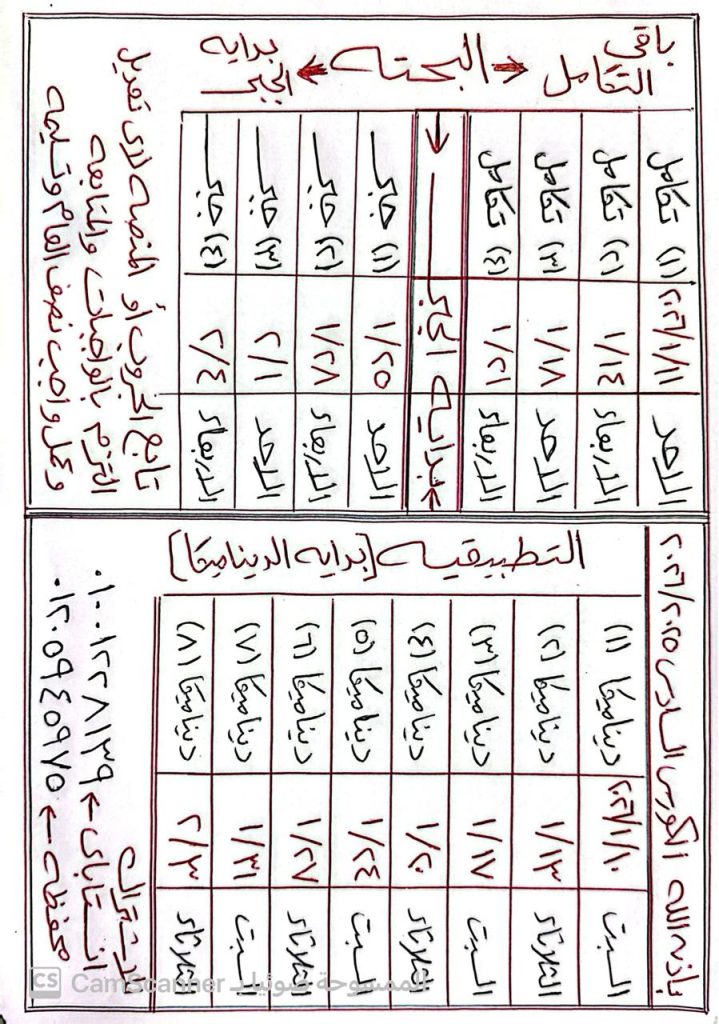 بإذن الله الكورس السادس ٢٠٢٦/٢٠٢٥
التطبيقية [بداية الديناميكا]
ديناميكا (١) ٢٠٢٦/١/١٠ السبت
ديناميكا (٢) ١/١٣ الثلاثاء
ديناميكا (٣) ١/١٧ السبت
ديناميكا (٤) ١/٢٠ الثلاثاء
ديناميكا (٥) ١/٢٤ السبت
ديناميكا (٦) ١/٢٧ الثلاثاء
ديناميكا (٧) ١/٣١ السبت
ديناميكا (٨) ٢/٣ الثلاثاء
انستاباى ← ٠١٠٠١٢٢٨١٣٩
محفظه ← ٠١٢٠٥٩٤٥٩٧٥
باقى التكامل ← البحته → بدايه الجبر
تكامل (١) ٢٠٢٦/١/١١ الاحد
تكامل (٢) ١/١٤ الاربعاء
تكامل (٣) ١/١٨ الاحد
تكامل (٤) ١/٢١ الاربعاء
بدايه الجبر
جبر (١) ١/٢٥ الاحد
جبر (٢) ١/٢٨ الاربعاء
جبر (٣) ٢/١ الاحد
جبر (٤) ٢/٤ الاربعاء
تابع الجروب أو المنصه لاى تعديل
التزم بالواجبات والمتابعه
وعمل واجب نصف العام وتسليمه
الممسوحة ضوئيا بـ CamScanner
CS